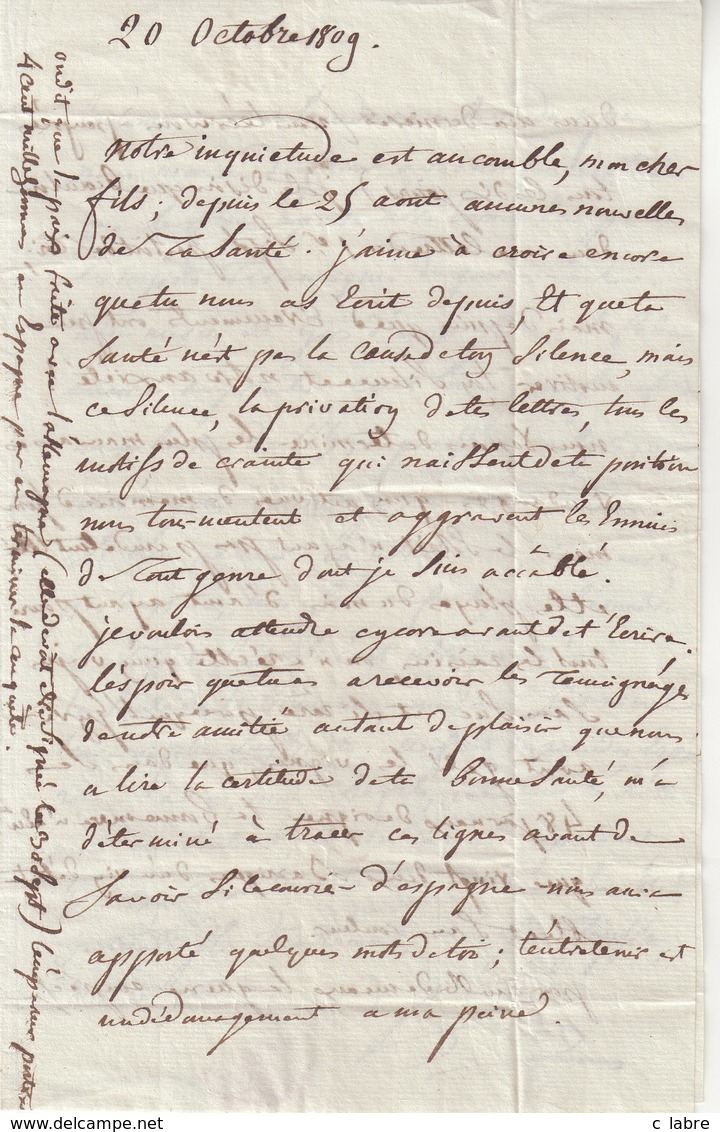 20 Octobre 1809.
Notre inquietude est au comble, mon cher
fils; depuis le 25 aout aucunes nouvelles
de ta Santé. j'aime à croire encore
que tu nous as Ecrit depuis, Et que ta
Santé n'est pas la Cause de ton Silence, mais
ce Silence, la privation de tes lettres, tous les
motifs de crainte qui naissent de ta position
nous tourmentent et aggravent les Ennuis
de Tout genre dont je Suis accablé.
je voulois attendre encore avant de t'Ecrire.
l'espoir que tu as a recevoir les Temoignages
de notre amitié autant de plaisir que nous
a lire la certitude de ta bonne Santé, m'a
déterminé à tracer ces lignes avant de
Savoir Si le courier d'espagne nous aura
apporté quelques mots de toi; t'entretenir est
un dédomagement a ma peine.
on dit que la paix faite avec l'allemagne (elle devoit etre Signée le 30 Sept) l'empereur portera
4 cent mille hommes en Espagne par en terminer la conquête.
c labre